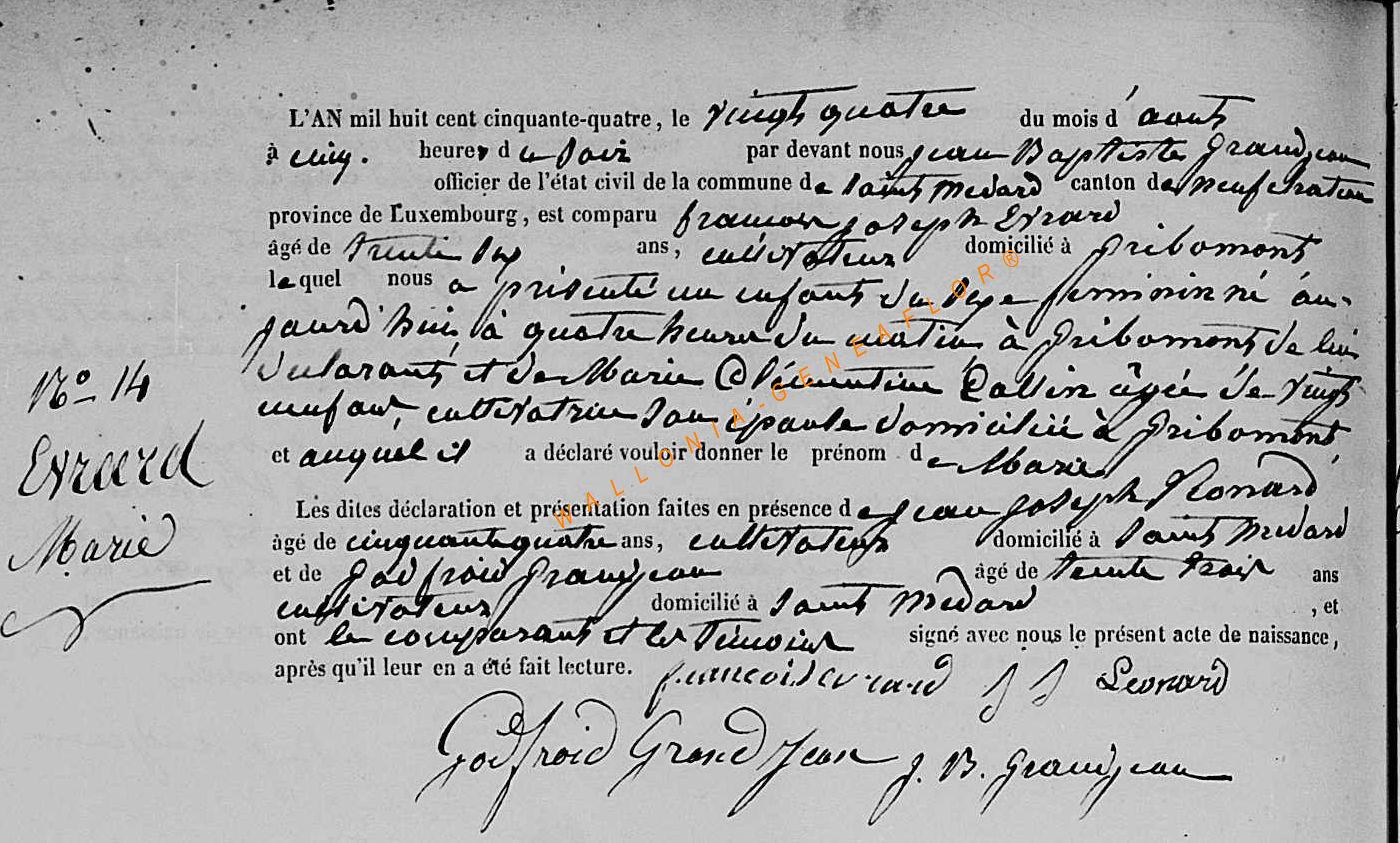 L'AN mil huit cent cinquante-quatre, le vingt quatre du mois d'aout
à cinq. heures du soir par devant nous jean Baptiste Grandjean
officier de l'état civil de la commune de saint medard canton de neufchateau
province de Luxembourg, est comparu francois joseph Evrard
âgé de trente six ans, cultivateur domicilié à gribomont
lequel nous a présenté un enfant du sexe feminin né au-
jourd'hui, à quatre heures du matin à gribomont de lui
declarant et de Marie Clémentine Collin âgée de vingt
neuf ans, cultivatrice son épouse domiciliée à gribomont,
et auquel il a déclaré vouloir donner le prénom de Marie
Les dites déclaration et présentation faites en présence de jean joseph
âgé de cinquante quatre ans, cultivateur domicilié à saint medard
et de godfroid grandjean âgé de trente trois ans
cultivateur domicilié à saint medard, et
ont le comparant et les témoins signé avec nous le présent acte de naissance,
après qu'il leur en a été fait lecture. francois evrard J J Leonard
Godfroid Grand Jean J. B. Grandjean
No 14
Evrard
Marie
WALLONIA-GENEAFLOR®